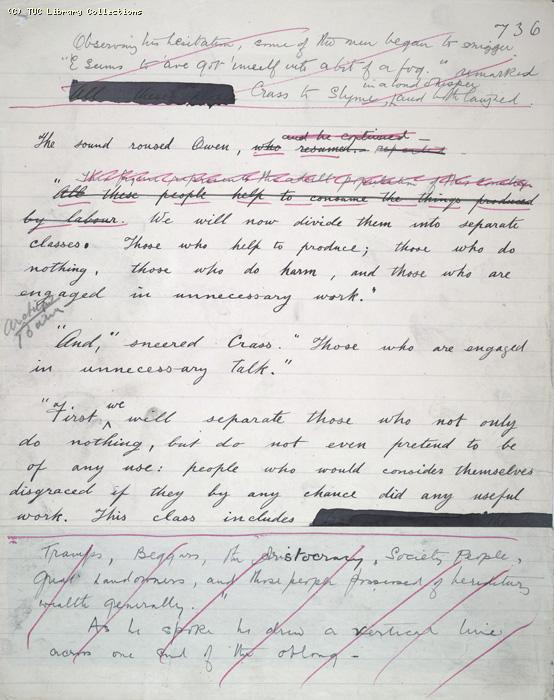 (C) TUC Library Collections
736
Observing his hesitation, some of the men began to snigger.
"E seems to 'ave got 'imself into a bit of a fog." remarked
in a loud whisper
Crass to Slyme, and both laughed
The sound roused Owen, who resumed. repeated
and he continued —
"All these people help to consume the things produced
by labour. We will now divide them into separate
classes. Those who help to produce; those who do
nothing, those who do harm, and those who are
engaged in unnecessary work."
"And," sneered Crass. "Those who are engaged
in unnecessary talk."
"First we will separate those who not only
do nothing, but do not even pretend to be
of any use: people who would consider themselves
disgraced if they by any chance did any useful
work. This class includes
Tramps, Beggars, the Aristocracy, Society People,
great Landowners, and those people possessed of hereditary
wealth generally."
As he spoke he drew a vertical line
across one end of the oblong —